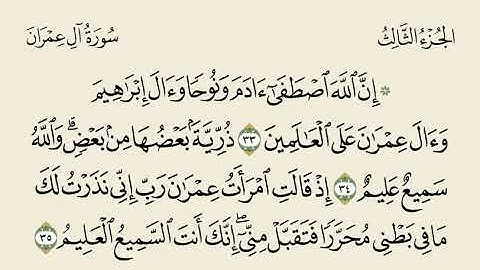 الجُزْءُ الثَّالِثُ
سُورَةُ آلِ عِمْرَانَ
۞ إِنَّ ٱللَّهَ ٱصْطَفَىٰٓ ءَادَمَ وَنُوحًا وَءَالَ إِبْرَٰهِيمَ
وَءَالَ عِمْرَٰنَ عَلَى ٱلْعَٰلَمِينَ ٣٣ ذُرِّيَّةَۢ بَعْضُهَا مِنۢ بَعْضٖۗ وَٱللَّهُ
سَمِيعٌ عَلِيمٌ ٣٤ إِذْ قَالَتِ ٱمْرَأَتُ عِمْرَٰنَ رَبِّ إِنِّي نَذَرْتُ لَكَ
مَا فِي بَطْنِي مُحَرَّرٗا فَتَقَبَّلْ مِنِّيٓۖ إِنَّكَ أَنتَ ٱلسَّمِيعُ ٱلْعَلِيمُ ٣٥